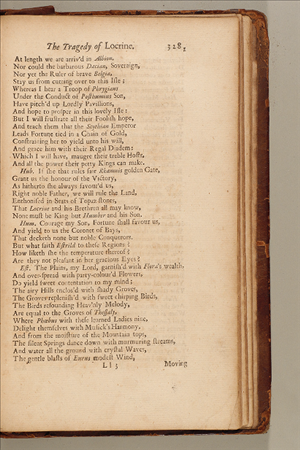 The Tragedy of Locrine. 3285
At length we are arriv'd in Albion.
Nor could the barbarous Dacian, Sovereign,
Nor yet the Ruler of brave Belgia,
Stay us from cutting over to this Isle;
Whereas I hear a Troop of Phrygians
Under the Conduct of Posthumius Son,
Have pitch'd up Lordly Pavilions,
And hope to prosper in this lovely Isle:
But I will frustrate all their Foolish hope,
And teach them that the Scythian Emperor
Leads Fortune tied in a Chain of Gold,
Constraining her to yield unto his will,
And grace him with their Regal Diadem:
Which I will have, maugre their treble Hosts,
And all the power their petty Kings can make.
Hub. If she that rules fair Rhamnis golden Gate,
Grant us the honour of the Victory,
As hitherto she always favour'd us,
Right noble Father, we will rule the Land,
Enthronised in Seats of Topaz stones,
That Locrine and his Brethren all may know,
None must be King but Humber and his Son.
Hum. Courage my Son, Fortune shall favour us,
And yield to us the Coronet of Bays,
That decketh none but noble Conquerors.
But what saith Estrild to these Regions?
How liketh she the temperature thereof?
Are they not pleasant in her gracious Eyes?
Est. The Plains, my Lord, garnish'd with Flora's wealth,
And over-spread with party-colour'd Flowers,
Do yield sweet contentation to my mind;
The airy Hills enclos'd with shady Groves,
The Groves replenish'd with sweet chirping Birds,
The Birds resounding Heav'nly Melody,
Are equal to the Groves of Thessaly,
Where Phœbus with these learned Ladies nine,
Delight themselves with Musick's Harmony,
And from the moisture of the Mountain tops,
The silent Springs dance down with murmuring streams,
And water all the ground with crystal Waves,
The gentle blasts of Eurus modest Wind,
L l 3 Moving